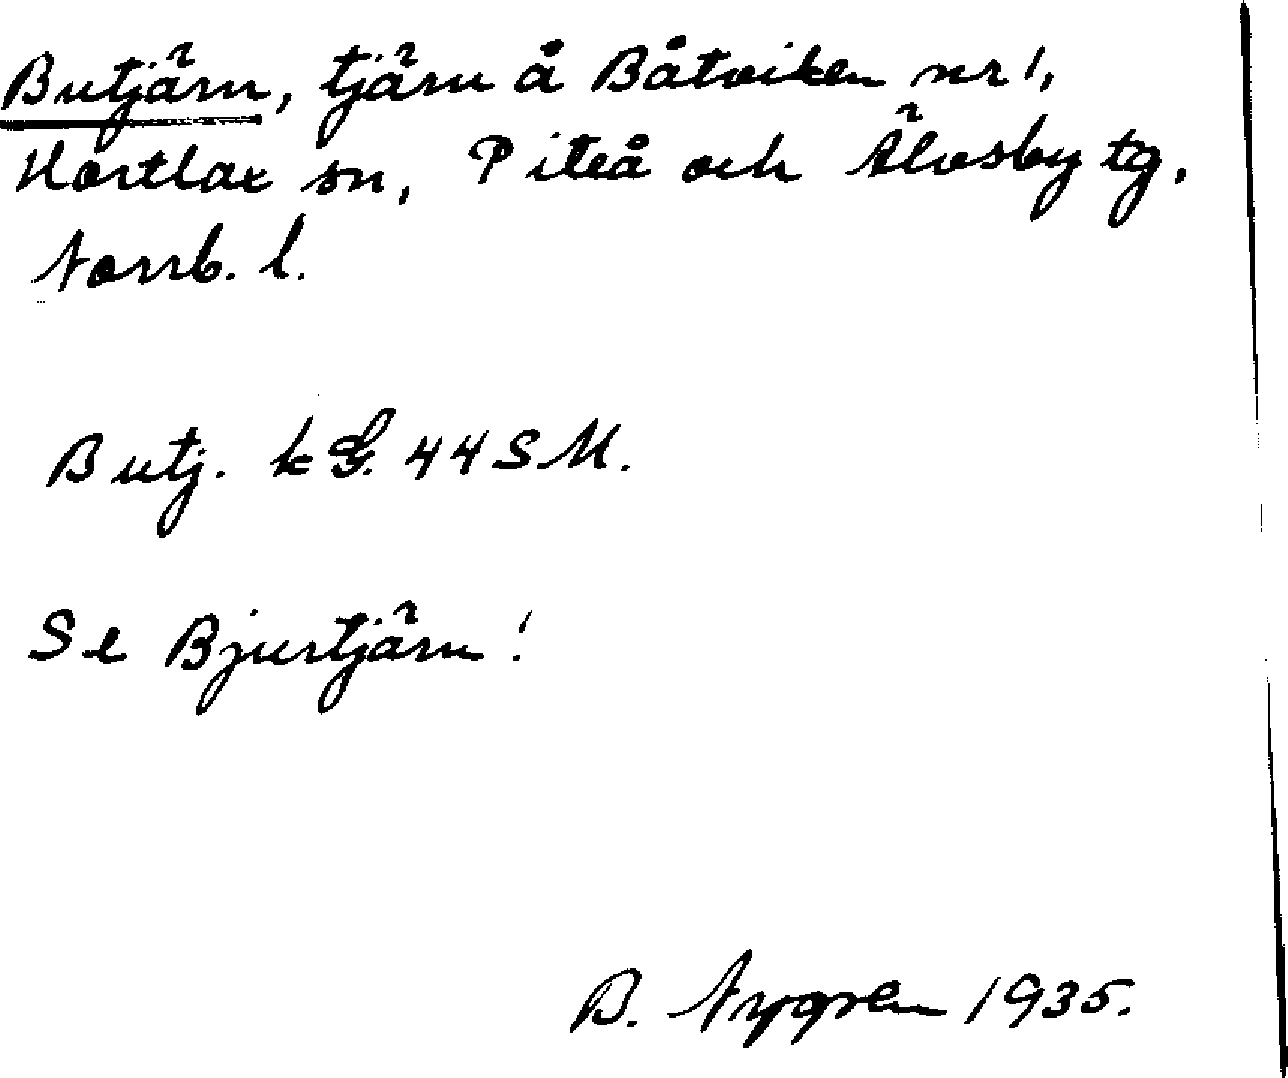 Butjärn, tjärn å Båtviken nr 1,
Hortlax sn, Piteå och Älvsby tg,
Norrb. l.
Butj. k G. 44 SM.
Se Bjurtjärn!
B. Nygren 1935.